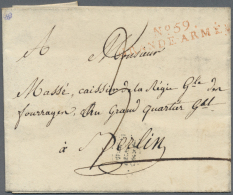 No. 59.
GRANDE ARMÉE
A Monsieur
Massé, caissier de la Régie Gle. des
fourrages, Au Grand quartier Gl.
à Berlin